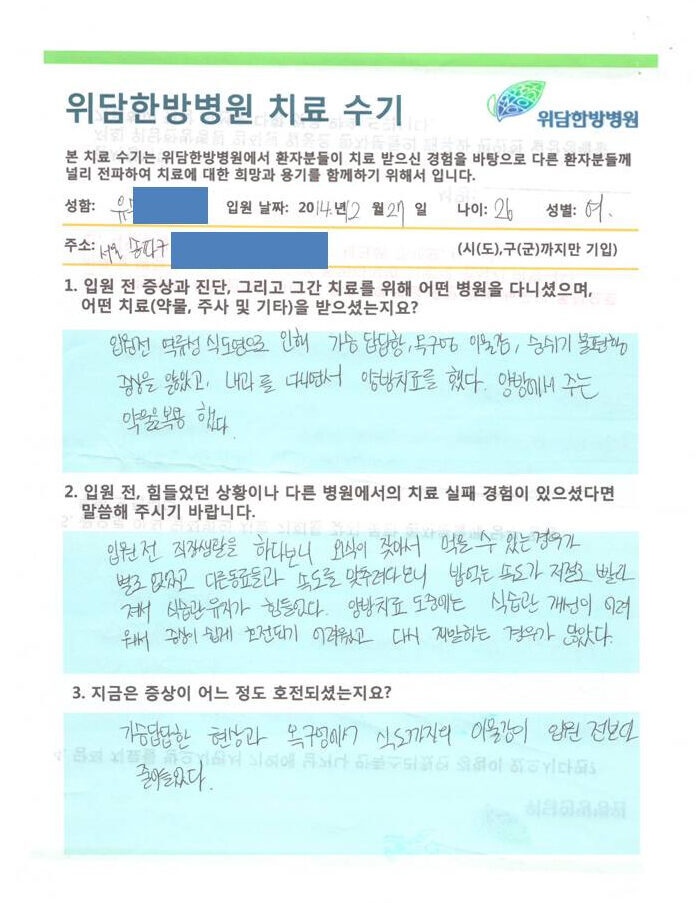 위담한방병원 치료 수기
위담한방병원
본 치료 수기는 위담한방병원에서 환자분들이 치료 받으신 경험을 바탕으로 다른 환자분들께
널리 전파하여 치료에 대한 희망과 용기를 함께하기 위해서 입니다.
성함: 유 입원 날짜: 2014.년 12 월 27 일 나이: 26 성별: 여.
주소: 서울 송파구 (시(도),구(군)까지만 기입)
1. 입원 전 증상과 진단, 그리고 그간 치료를 위해 어떤 병원을 다니셨으며,
어떤 치료(약물, 주사 및 기타)을 받으셨는지요?
입원전 역류성 식도염으로 인해 가슴 답답함, 목구멍 이물감, 숨쉬기 불편한
증상을 앓았고, 내과를 다니면서 양방치료를 했다. 양방에서 주는
약물을 복용 했다.
2. 입원 전, 힘들었던 상황이나 다른 병원에서의 치료 실패 경험이 있으셨다면
말씀해 주시기 바랍니다.
입원 전 직장생활을 하다보니 외식이 잦아서 먹을 수 있는 경우가
별로 없었고 다른동료들과 속도를 맞추려다보니 밥먹는 속도가 저절로 빨라
져서 식습관 유지가 힘들었다. 양방치료 도중에는 식습관 개선이 어려
워서 증상이 쉽게 호전되기 어려웠고 다시 재발하는 경우가 많았다.
3. 지금은 증상이 어느 정도 호전되셨는지요?
가슴답답한 현상과 목구멍에서 식도까지의 이물감이 입원 전보다
줄어들었다.